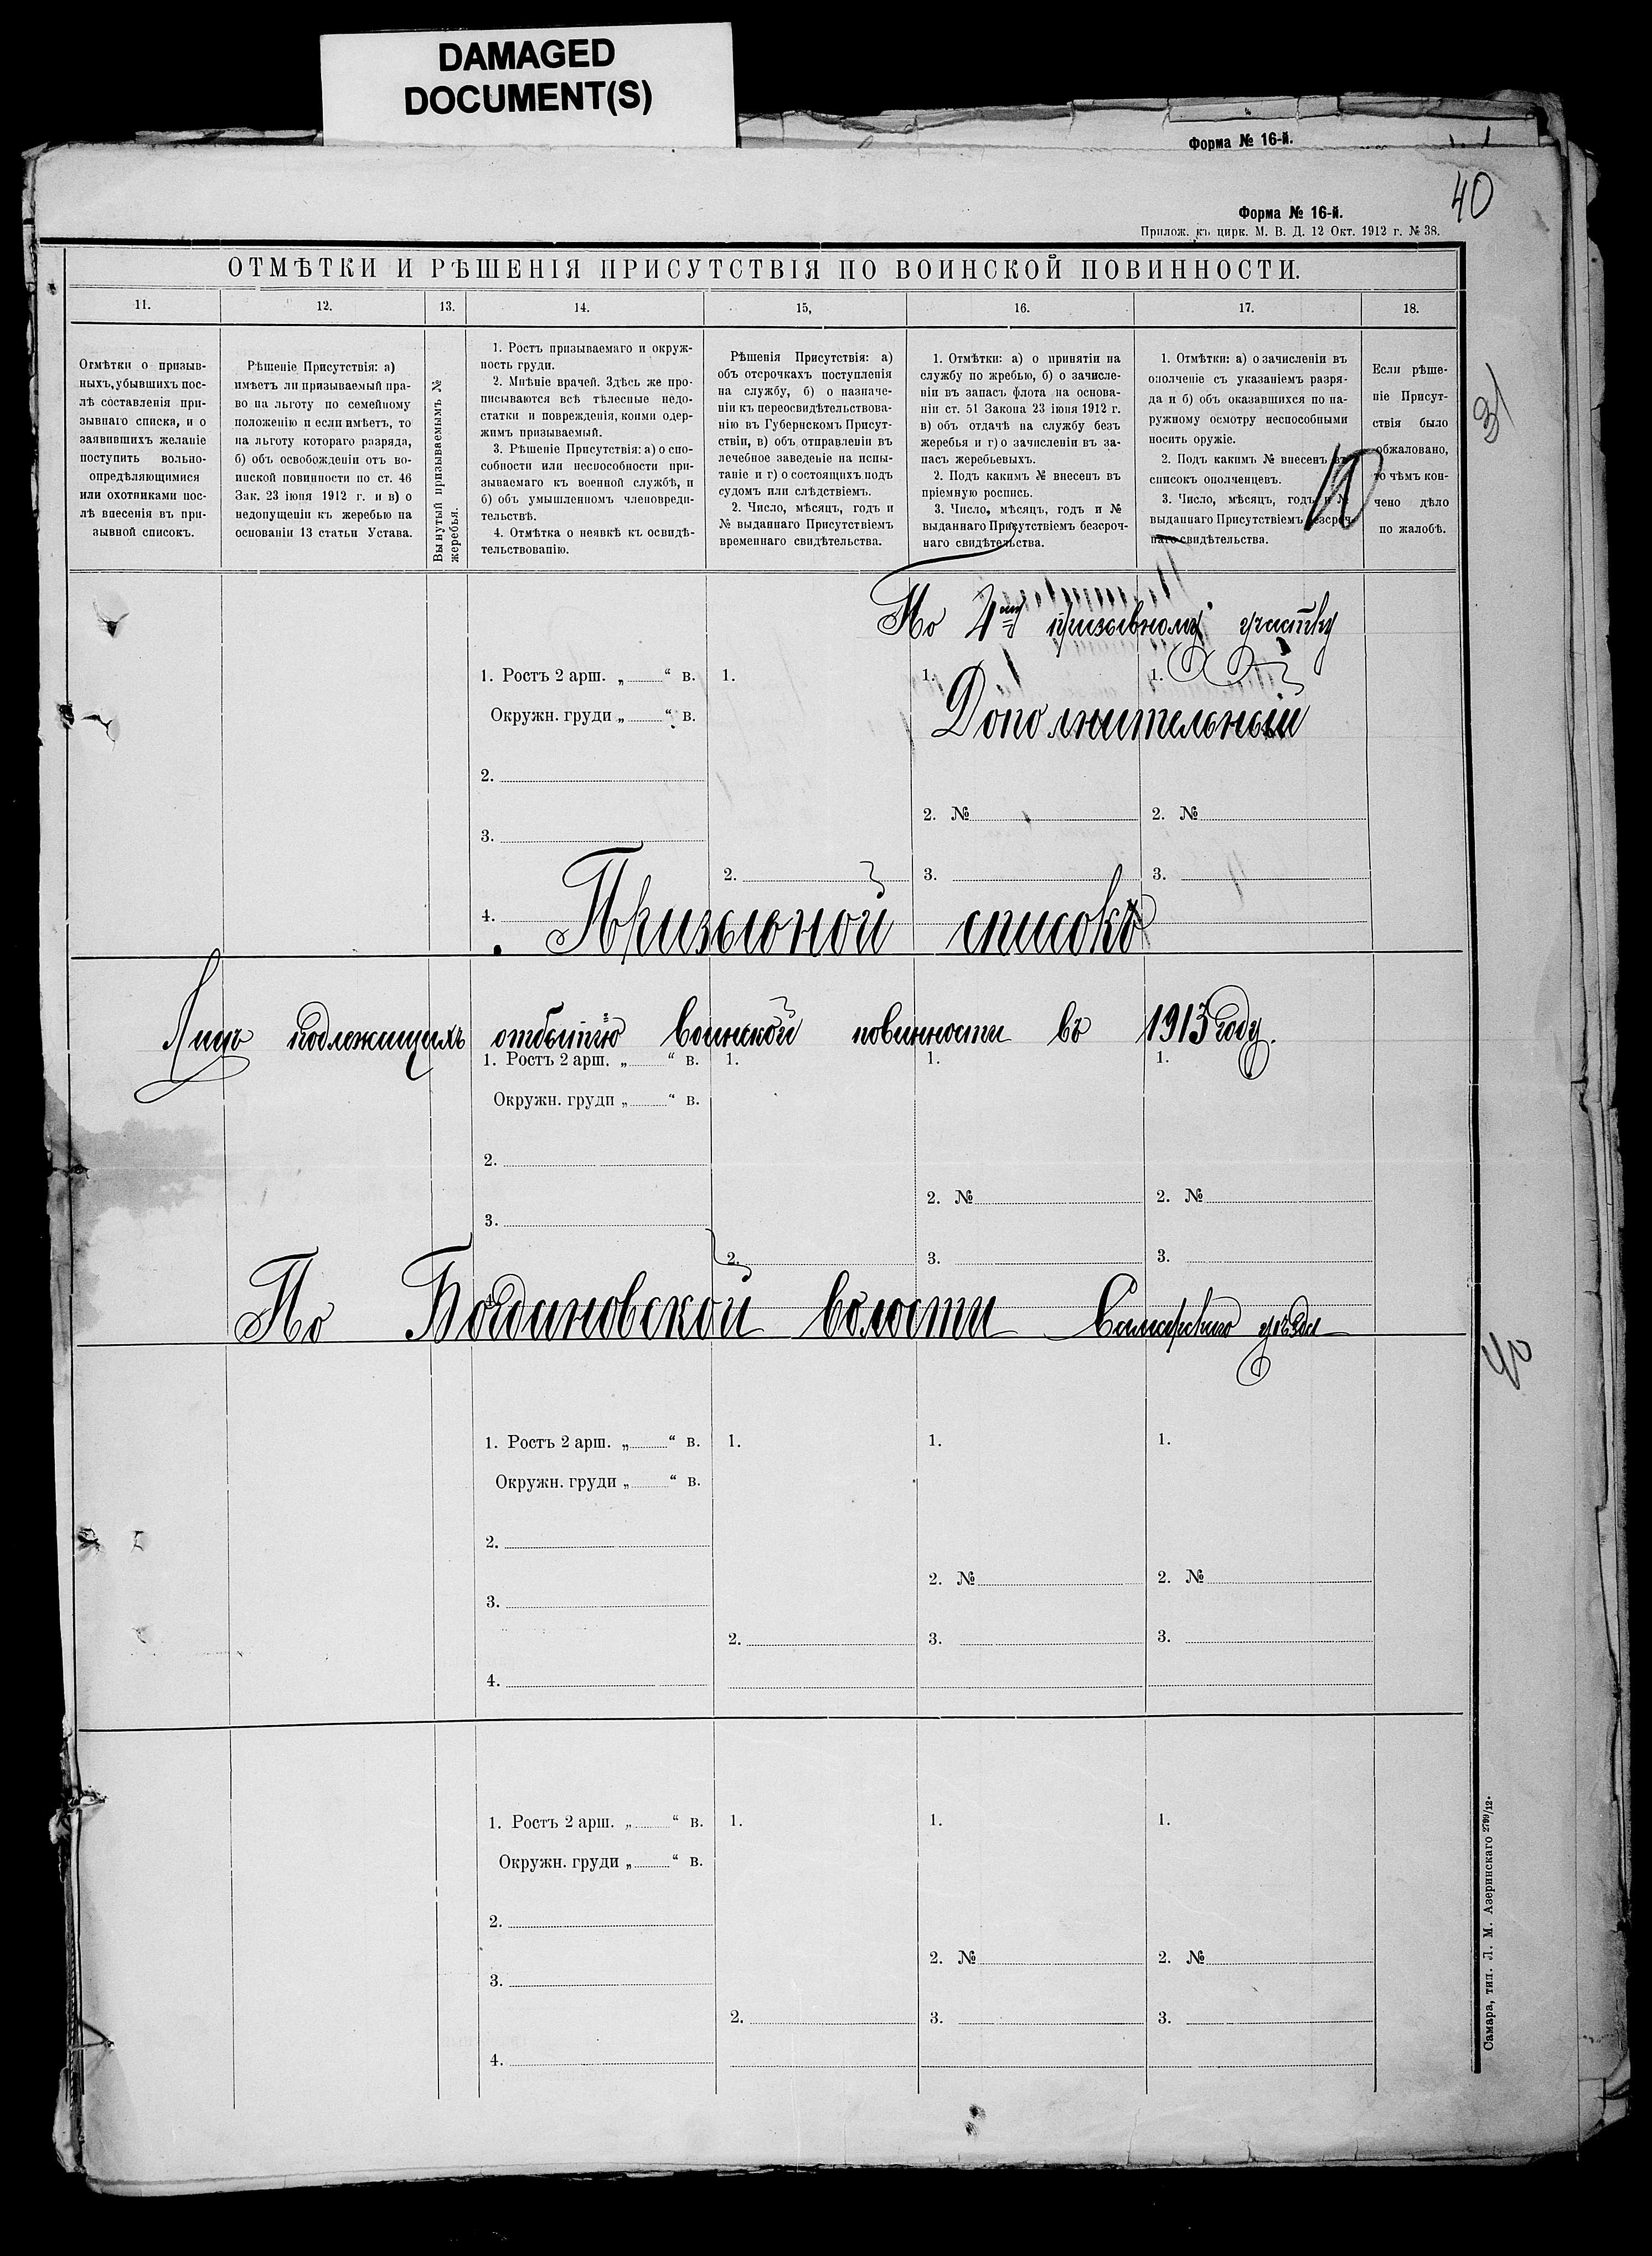 DAMAGED
DOCUMENT(S)
Форма № 16-й.
40
Форма № 16-й.
Прилож. къ цирк. М. В. Д. 12 Окт. 1912 г. № 38.
ОТМѢТКИ И РѢШЕНІЯ ПРИСУТСТВІЯ ПО ВОИНСКОЙ ПОВИННОСТИ.
11.
12.
13.
14.
15,
16.
17.
18.
Отмѣтки о призыв-
ныхъ, убывшихъ пос-
лѣ составленія при-
зывнаго списка, и о
заявившихъ желаніе
поступить вольно-
опредѣляющимися
или охотниками пос-
лѣ внесенія въ при-
зывной списокъ.
Рѣшеніе Присутствія: а)
имѣетъ ли призываемый пра-
во на льготу по семейному
положенію и если имѣетъ, то
на льготу котораго разряда,
б) объ освобожденіи отъ во-
инской повинности по ст. 46
Зак. 23 іюня 1912 г. и в) о
недопущеніи къ жеребью на
основаніи 13 статьи Устава.
Вынутый призываемымъ №
жеребья.
1. Ростъ призываемаго и окруж-
ность груди.
2. Мнѣніе врачей. Здѣсь же про-
писываются всѣ тѣлесные недо-
статки и поврежденія, коими одер-
жимъ призываемый.
3. Рѣшеніе Присутствія: а) о спо-
собности или неспособности при-
зываемаго къ военной службѣ, и
б) объ умышленномъ членовреди-
тельствѣ.
4. Отмѣтка о неявкѣ къ освидѣ-
тельствованію.
Рѣшенія Присутствія: а)
объ отсрочкахъ поступленія
на службу, б) о назначе-
ніи къ переосвидѣтельствова-
нію въ Губернскомъ Присут-
ствіи, в) объ отправленіи въ
лечебное заведеніе на испы-
таніе и г) о состоящихъ подъ
судомъ или слѣдствіемъ.
2. Число, мѣсяцъ, годъ и
№ выданнаго Присутствіемъ
временнаго свидѣтельства.
1. Отмѣтки: а) о принятіи на
службу по жребью, б) о зачисле-
ніи въ запасъ флота на основа-
ніи ст. 51 Закона 23 іюня 1912 г.
в) объ отдачѣ на службу безъ
жеребья и г) о зачисленіи въ за-
пасъ жеребьевыхъ.
2. Подъ какимъ № внесенъ въ
пріемную роспись.
3. Число, мѣсяцъ, годъ и №
выданнаго Присутствіемъ безсроч-
наго свидѣтельства.
1. Отмѣтки: а) о зачисленіи въ
ополченіе съ указаніемъ разря-
да и б) объ оказавшихся по на-
ружному осмотру неспособными
носить оружіе.
2. Подъ какимъ № внесенъ въ
списокъ ополченцевъ.
3. Число, мѣсяцъ, годъ и №
выданнаго Присутствіемъ безсроч-
наго свидѣтельства.
Если рѣше-
ніе Присут-
ствія было
обжаловано,
то чѣмъ кон-
чено дѣло
по жалобѣ.
По 4му призывному участку
1. Ростъ 2 арш. „ “ в.
1.
1.
1.
Окружн. груди „ “ в.
Дополнительный
2.
2. №
2. №
3.
2.
3.
3.
4.
Призывной списокъ
Лицъ подлежащихъ отбытію воинской повинности въ 1913 году.
1. Ростъ 2 арш. „ “ в.
1.
1.
1.
Окружн. груди „ “ в.
2.
2. №
2. №
3.
2.
3.
3.
По Богдановской волости Самарскаго уѣзда
40
1. Ростъ 2 арш. „ “ в.
1.
1.
1.
Окружн. груди „ “ в.
2.
2. №
2. №
3.
2.
3.
3.
4.
1. Ростъ 2 арш. „ “ в.
1.
1.
1.
Окружн. груди „ “ в.
2.
2. №
2. №
3.
2.
3.
3.
4.
Самара, тип. Л. М. Азеринскаго 2799/12.